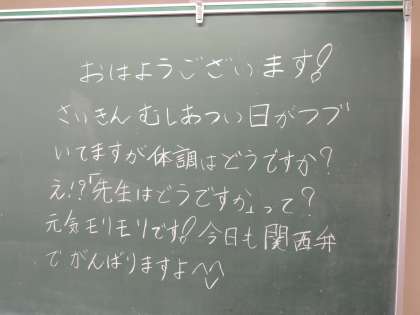 おはようございます!
さいきん むしあつい日がつづ
いてますが体調はどうですか?
え!?「先生はどうですか」って?
元気モリモリです!今日も関西弁
でがんばりますよ^^